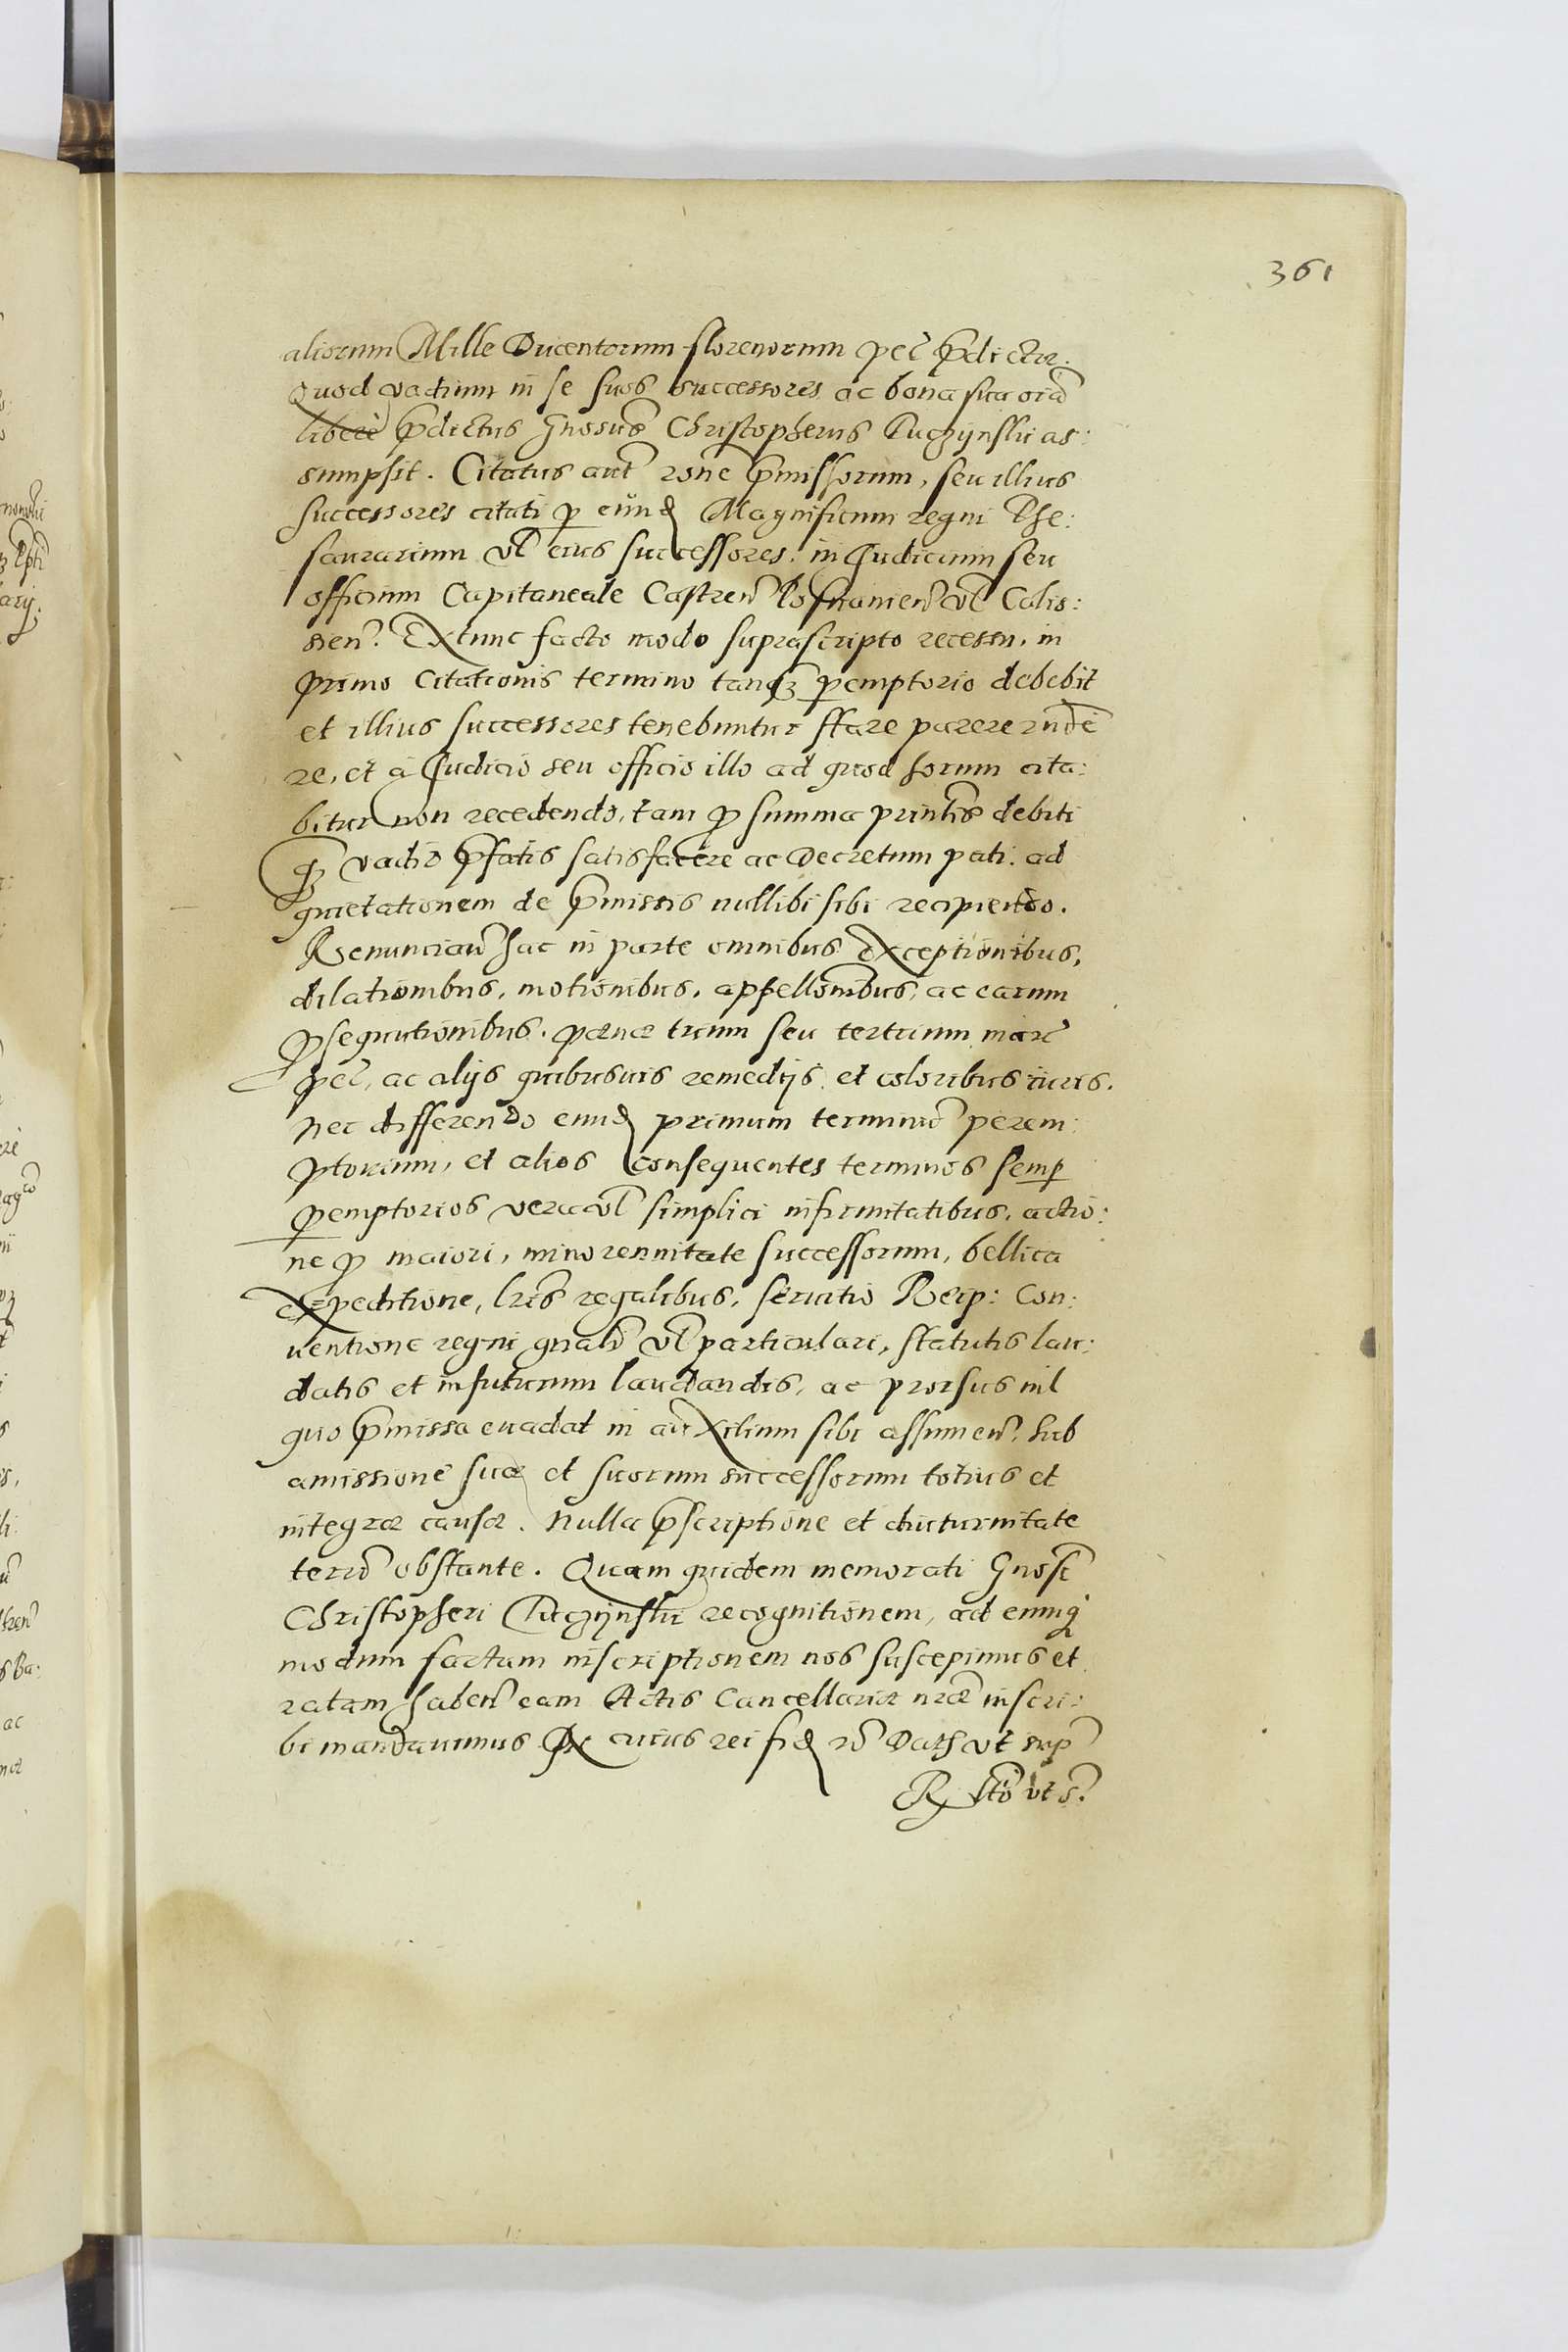 361
aliorum Mille Ducentorum florenorum pec̃ p̃dictæ.
Quod vadium in se suos successores ac bona sua oĩa
liberè p̃dictus Gnosus Christopherus Tuczynski as:
sumpsit. Citatus aut̃ rone p̃missorum, seu illius
successores citati p eund Magnificum regni The:
saurarium vl eius successores. in Judicium seu
officium Capitaneale Castreñ Posnanieñ vl Calis:
sieñ. Extunc facto modo suprascripto recessu, in
primo citationis termino tanq̃ pemptorio debebit
et illius successores tenebuntur stare parere rñde
re, et à Judicio seu officio illo ad quod forum cita:
bitur non recedendo, tam p summa prinlis debiti
q̃ vadio p̃fatis satisfacere ac Decretum pati. ad
quietationem de p̃missis nullibi sibi recipiendo.
Renunciañ hac in parte omnibus exceptionibus,
dilationibus, motionibus, appellonibus, ac earum
psequutionibus. pænæ trium seu tertium marc̃
pec̃, ac alijs quibusuis remedijs et coloribus iuris.
Nec differendo eund primum terminũ perem:
ptorium, et alios consequentes terminos semp
pemptorios vera vl simplici infirmitatibus, actio:
ne p maiori, minorennitate successorum, bellica
expeditione, lris regalibus, seruitio Reip: Con:
uentione regni gnali vl particulari, statutis lau:
datis et in futurum laudandis, ac prorsus nil
quo p̃missa euadat in auxilium sibi assumeñ. sub
amissione suæ et suorum successorum totius et
integræ causæ. Nulla p̃scriptione et diuturnitate
terrũ obstante. Quam quidem memorati Gnosi
Christopheri Tuczynski recognitionem, ad eumq
modum factam inscriptionem nos suscepimus et
ratam habeñ eam Actis Cancellariæ nræ inscri:
bi mandauimus In cuius rei fid rõ Dath vt sup̃
R. Ito vt s.